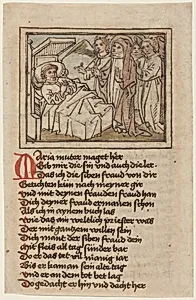 Maria muter maget her
Gib mir die sin und auch die ler
Das ich die siben fraud von dir
Geruchen kun nach meyner gir
und mit deynen frauden fraud han
Dich deyner fraud ermanen schon
Als ich in eynem buch las
wie das ein weltlich priester was
Der mit ganczem vollen sein
Dich mant der siben fraud den
Mit fleis all tag sunder bar
Do er das tet vil manig iar
Bis er kam an sein alte tag
und er an dem bot bet lag
Do gedacht er hin und dacht her